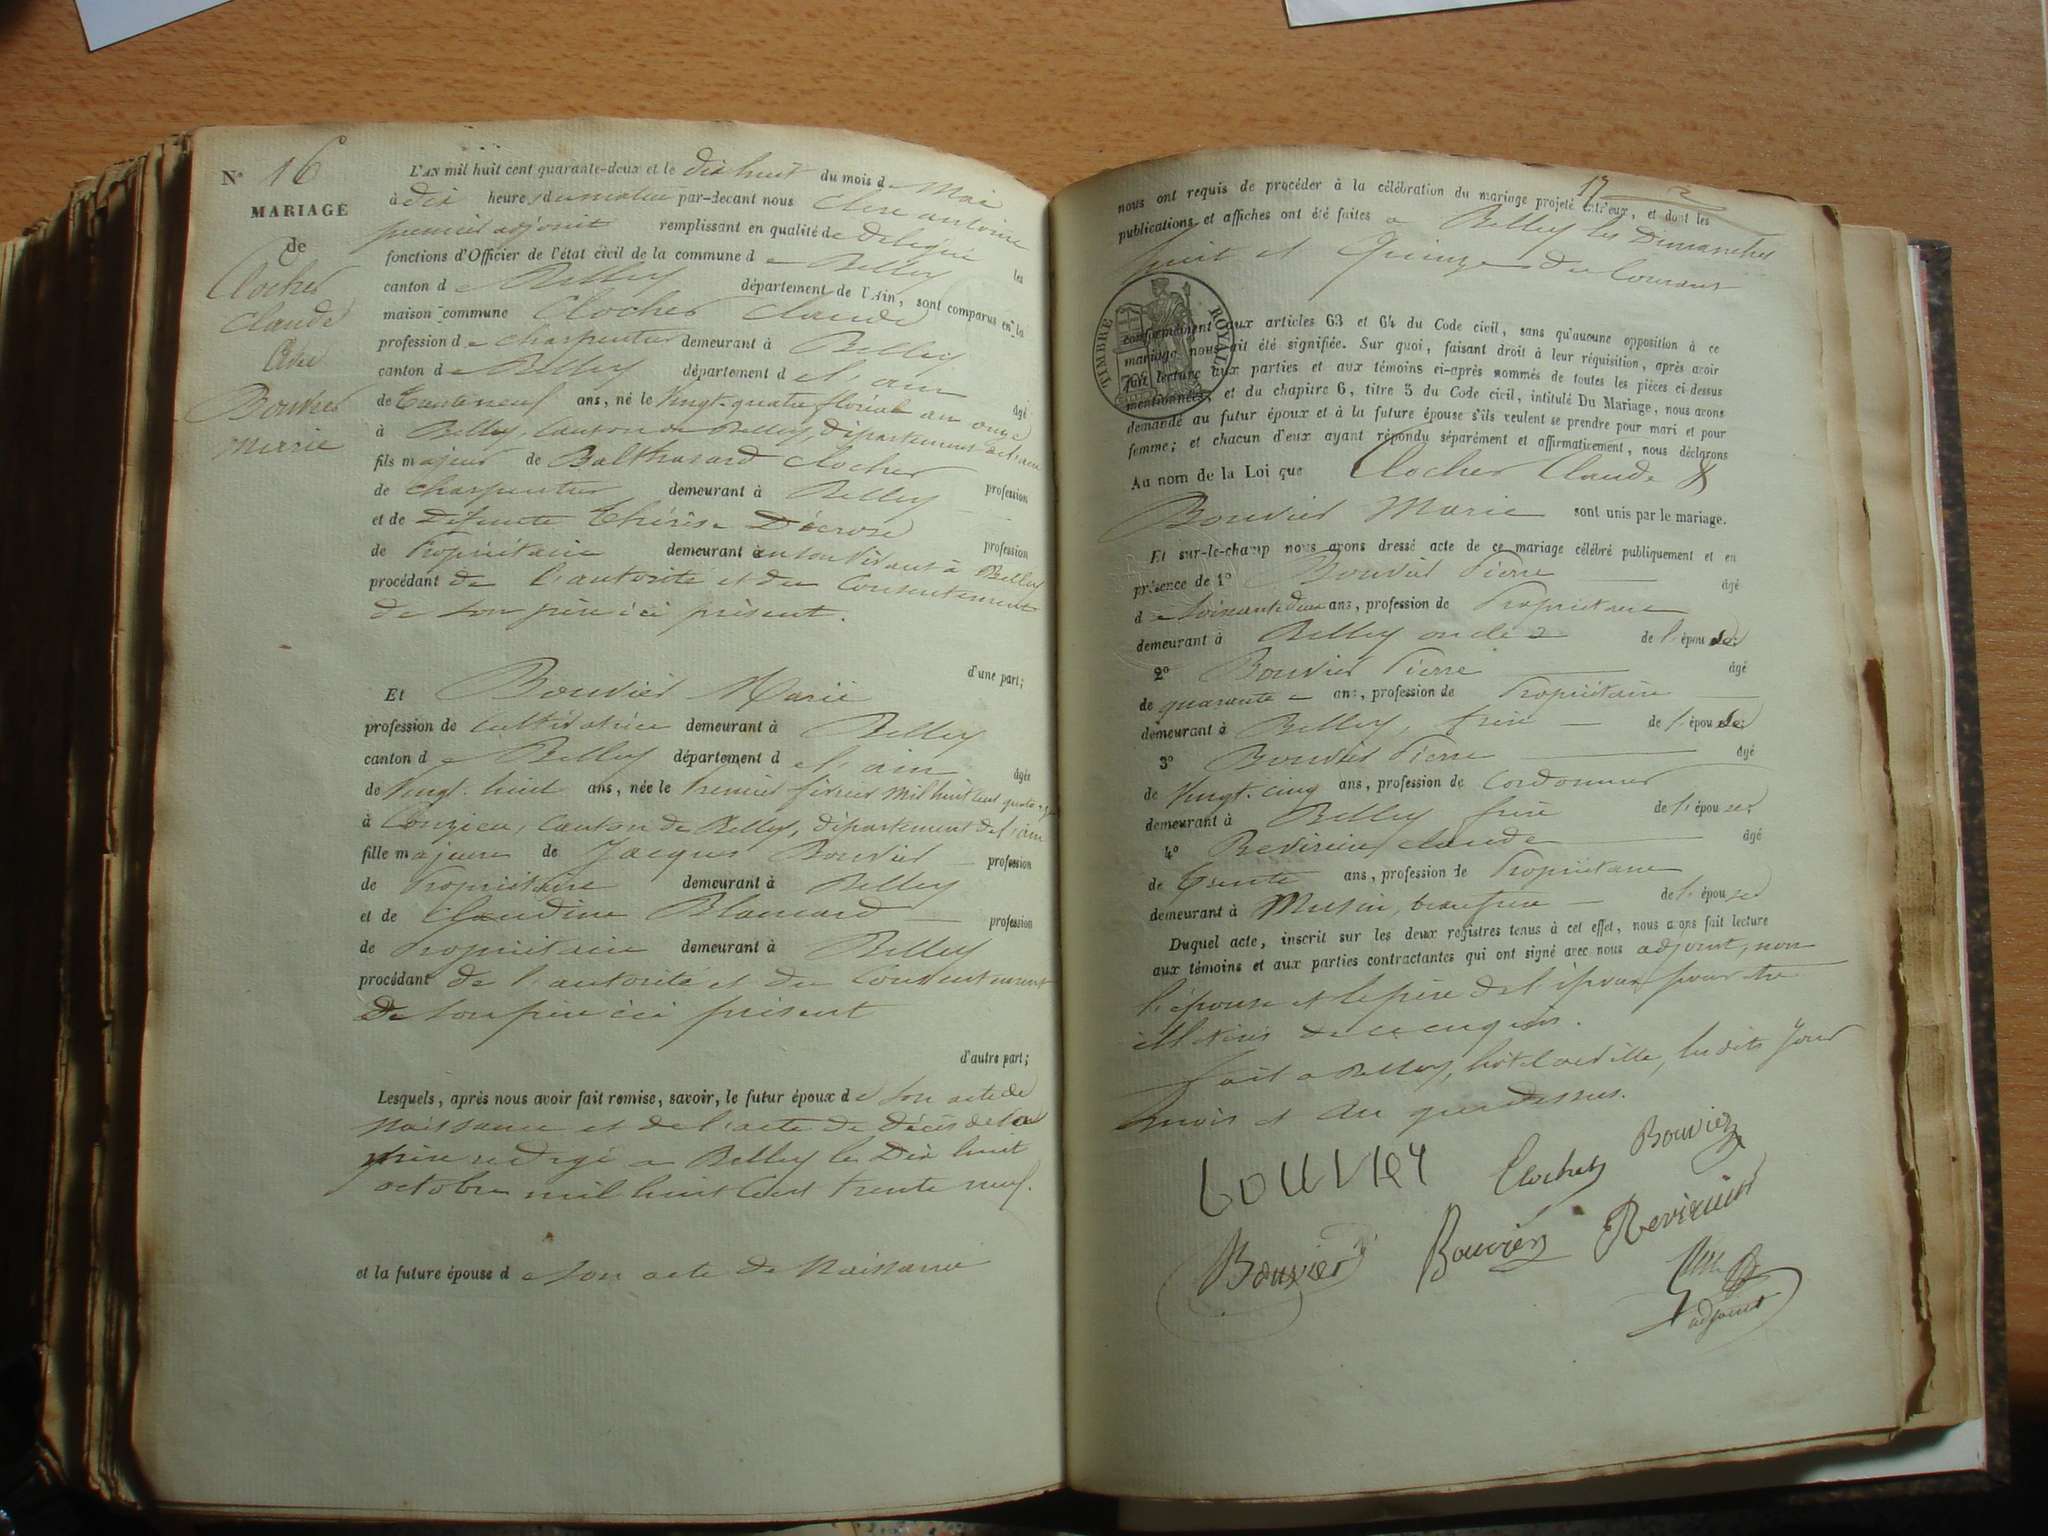 Nº 16
MARIAGE
de
Clocher
Claude
Avec
Bouvier
Marie
L'AN mil huit cent quarante-deux et le dix huit du mois de Mai
à dix heures du matin par-devant nous Clerc antoine
premier adjoint remplissant en qualité de délégué les
fonctions d'Officier de l'état civil de la commune de Belley
canton de Belley département de l'Ain, sont comparus en la
maison commune Clocher Claude
profession de charpentier demeurant à Belley
canton de Belley département de l'ain âgé
de trente neuf ans, né le Vingt-quatre floréal an onze
à Belley, Canton de Belley, département de l'ain
fils majeur de Balthazard Clocher profession
de charpentier demeurant à Belley
et de défunte Thérèse Décroso profession
de Propriétaire demeurant en son vivant à Belley
procédant de l'autorité et du Consentement
de son père ici présent.
d'une part;
Et Bouvier Marie
profession de cultivatrice demeurant à Belley
canton de Belley département de l'ain âgée
de Vingt-huit ans, née le Premier février mil huit cent quatorze
à Conzieu, Canton de Belley, département de l'ain
fille majeure de Jacques Bouvier profession
de Propriétaire demeurant à Belley
et de Claudine Blancard profession
de Propriétaire demeurant à Belley
procédant de l'autorité et du Consentement
de son père ici présent
d'autre part;
Lesquels, après nous avoir fait remise, savoir, le futur époux de son acte de
Naissance et de l'acte de décès de sa
mère rédigé à Belley le Dix huit
octobre mil huit cent trente neuf.
et la future épouse de son acte de Naissance
17
nous ont requis de procéder à la célébration du mariage projeté entr'eux, et dont les
publications et affiches ont été faites à Belley les Dimanches
huit et Quinze du Courant
TIMBRE ROYAL
70c
conformément aux articles 63 et 64 du Code civil, sans qu'aucune opposition à ce
mariage nous ait été signifiée. Sur quoi, faisant droit à leur réquisition, après avoir
fait lecture aux parties et aux témoins ci-après nommés de toutes les pièces ci-dessus
mentionnées, et du chapitre 6, titre 5 du Code civil, intitulé Du Mariage, nous avons
demandé au futur époux et à la future épouse s'ils veulent se prendre pour mari et pour
femme; et chacun d'eux ayant répondu séparément et affirmativement, nous déclarons
Au nom de la Loi que Clocher Claude &
Bouvier Marie sont unis par le mariage.
Et sur-le-champ nous avons dressé acte de ce mariage célébré publiquement et en
présence de 1º Bouvier Pierre âgé
de soixante deux ans, profession de Propriétaire
demeurant à Belley oncle de l'épouse;
2º Bouvier Pierre âgé
de quarante ans, profession de Propriétaire
demeurant à Belley, frère de l'épouse;
3º Bouvier Pierre âgé
de Vingt-cinq ans, profession de Cordonnier
demeurant à Belley frère de l'épouse
4º Revirieux claude âgé
de Trente ans, profession de Propriétaire
demeurant à Musin, beau frère de l'épouse
Duquel acte, inscrit sur les deux registres tenus à cet effet, nous avons fait lecture
aux témoins et aux parties contractantes qui ont signé avec nous adjoint, non
l'épouse et le père de l'époux pour être
illétérés de ce enquis.
fait à Belley, hôtel de ville, les dits jour
mois et An que dessus.
bouvier Clocher Bouvier
Bouvier Bouvier Revirieux
adjoint